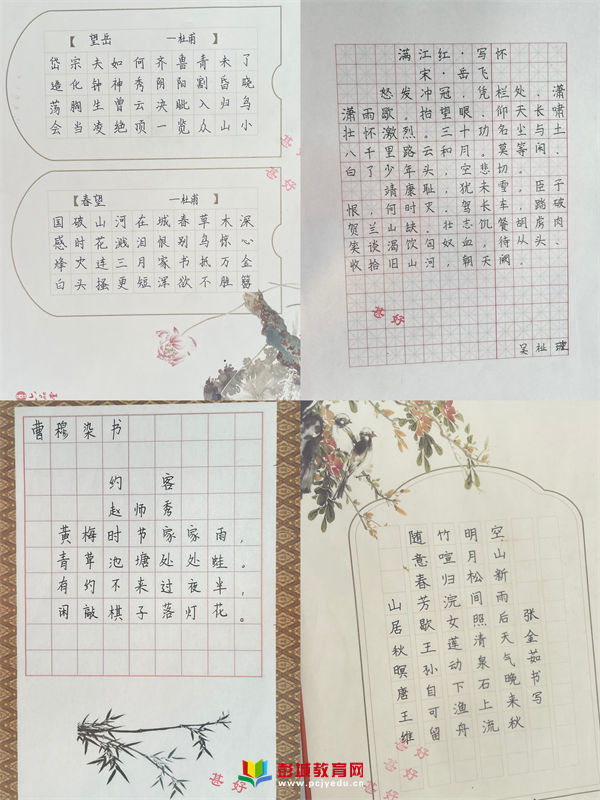 【 望岳 —杜甫 】
岱宗夫如何齐鲁青未了
造化钟神秀阴阳割昏晓
荡胸生曾云决眦入归鸟
会当凌绝顶一览众山小
甚好
【 春望 —杜甫 】
国破山河在城春草木深
感时花溅泪恨别鸟惊心
烽火连三月家书抵万金
白头搔更短深欲不胜簪
甚好
满江红·写怀
宋·岳飞
怒发冲冠,凭栏处、潇
潇雨歇。抬望眼,仰天长啸
壮怀激烈。三十功名尘与土
八千里路云和月。莫等闲、
白了少年头,空悲切
靖康耻,犹未雪。臣子
恨,何时灭。驾长车,踏破
贺兰山缺。壮志饥餐胡虏肉、
笑谈渴饮匈奴血。待从头、
收拾旧山河,朝天阙。
甚好
曹穆染书
约客
赵师秀
黄梅时节家家雨,
青草池塘处处蛙。
有约不来过夜半,
闲敲棋子落灯花。
甚好
张金茹书写
空山新雨后天气晚来秋
明月松间照清泉石上流
竹喧归浣女莲动下渔舟
随意春芳歇王孙自可留
山居秋暝唐王维
甚好
彭城教育网
www.pcjyedu.cn